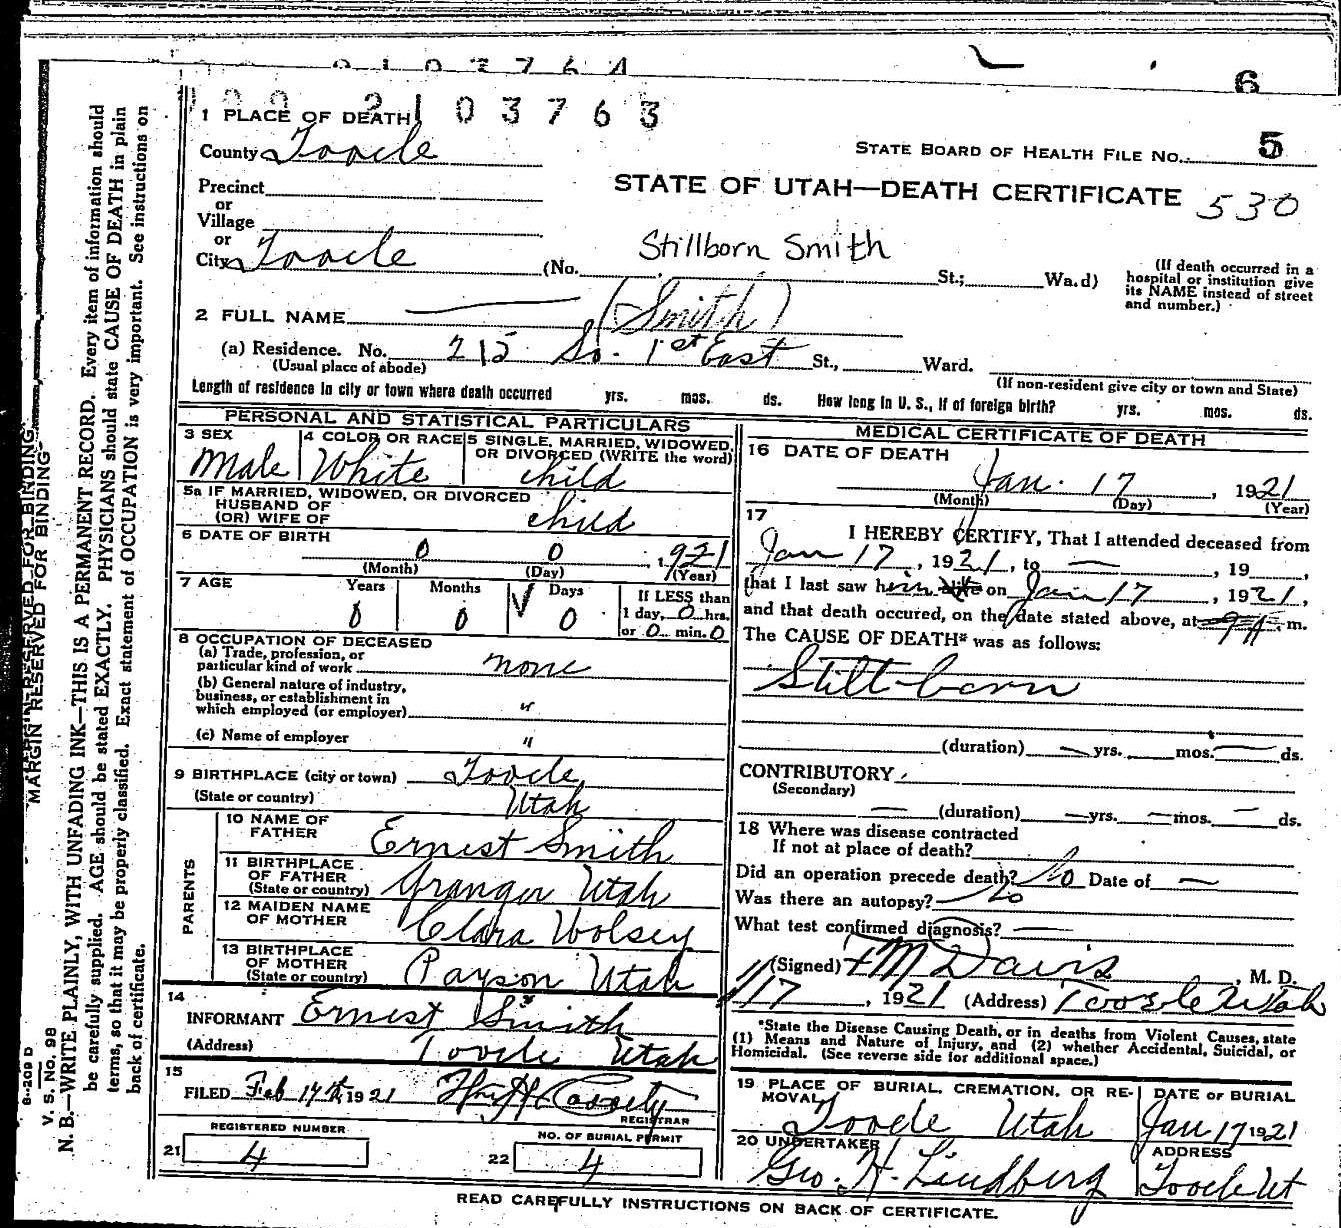 6
2103763
1 PLACE OF DEATH
County Tooele
STATE BOARD OF HEALTH FILE NO. 5
Precinct
STATE OF UTAH—DEATH CERTIFICATE 530
or
Village
or
Stillborn Smith
City Tooele (No. St.; Wa.d)
(If death occurred in a
hospital or institution give
its NAME instead of street
and number.)
2 FULL NAME (Smith)
(a) Residence. No. 215 So. 1st East St., Ward.
(Usual place of abode)
(If non-resident give city or town and State)
Length of residence in city or town where death occurred yrs. mos. ds. How long in U. S., if of foreign birth? yrs. mos. ds.
PERSONAL AND STATISTICAL PARTICULARS
3 SEX
Male
4 COLOR OR RACE
White
5 SINGLE, MARRIED, WIDOWED
OR DIVORCED (WRITE the word)
child
5a IF MARRIED, WIDOWED, OR DIVORCED
HUSBAND OF
(OR) WIFE OF
child
6 DATE OF BIRTH
0 0 1921
(Month) (Day) (Year)
7 AGE
Years Months Days
0 0 0
If LESS than
1 day, 0 hrs.
or 0 min. 0
8 OCCUPATION OF DECEASED
(a) Trade, profession, or
particular kind of work none
(b) General nature of industry,
business, or establishment in
which employed (or employer) "
(c) Name of employer "
9 BIRTHPLACE (city or town) Tooele
(State or country) Utah
PARENTS
10 NAME OF
FATHER Ernest Smith
11 BIRTHPLACE
OF FATHER
(State or country) Granger Utah
12 MAIDEN NAME
OF MOTHER Clara Wolsey
13 BIRTHPLACE
OF MOTHER
(State or country) Payson Utah
14
INFORMANT Ernest Smith
(Address) Tooele Utah
15
FILED Feb 17th, 1921
REGISTRAR
REGISTERED NUMBER
21 4
NO. OF BURIAL PERMIT
22 4
MEDICAL CERTIFICATE OF DEATH
16 DATE OF DEATH
Jan. 17, 1921
(Month) (Day) (Year)
17
I HEREBY CERTIFY, That I attended deceased from
Jan 17, 1921, to —, 19
that I last saw him alive on Jan 17, 1921,
and that death occured, on the date stated above, at m.
The CAUSE OF DEATH* was as follows:
Still-born
(duration) — yrs. — mos. — ds.
CONTRIBUTORY
(Secondary)
— (duration) — yrs. — mos. — ds.
18 Where was disease contracted
If not at place of death?
Did an operation precede death? No Date of —
Was there an autopsy? No
What test confirmed diagnosis? —
(Signed) F M Davis, M. D.
1/17, 1921 (Address) Tooele Utah
*State the Disease Causing Death, or in deaths from Violent Causes, state
(1) Means and Nature of Injury, and (2) whether Accidental, Suicidal, or
Homicidal. (See reverse side for additional space.)
19 PLACE OF BURIAL, CREMATION, OR RE-
MOVAL
Tooele Utah
DATE OF BURIAL
Jan 17 1921
20 UNDERTAKER
Geo. H. Lindberg
ADDRESS
Tooele Ut
READ CAREFULLY INSTRUCTIONS ON BACK OF CERTIFICATE.
MARGIN RESERVED FOR BINDING
N. B.—WRITE PLAINLY, WITH UNFADING INK—THIS IS A PERMANENT RECORD. Every item of information should
be carefully supplied. AGE should be stated EXACTLY. PHYSICIANS should state CAUSE OF DEATH in plain
terms, so that it may be properly classified. Exact statement of OCCUPATION is very important. See instructions on
back of certificate.
V. S. No. 98